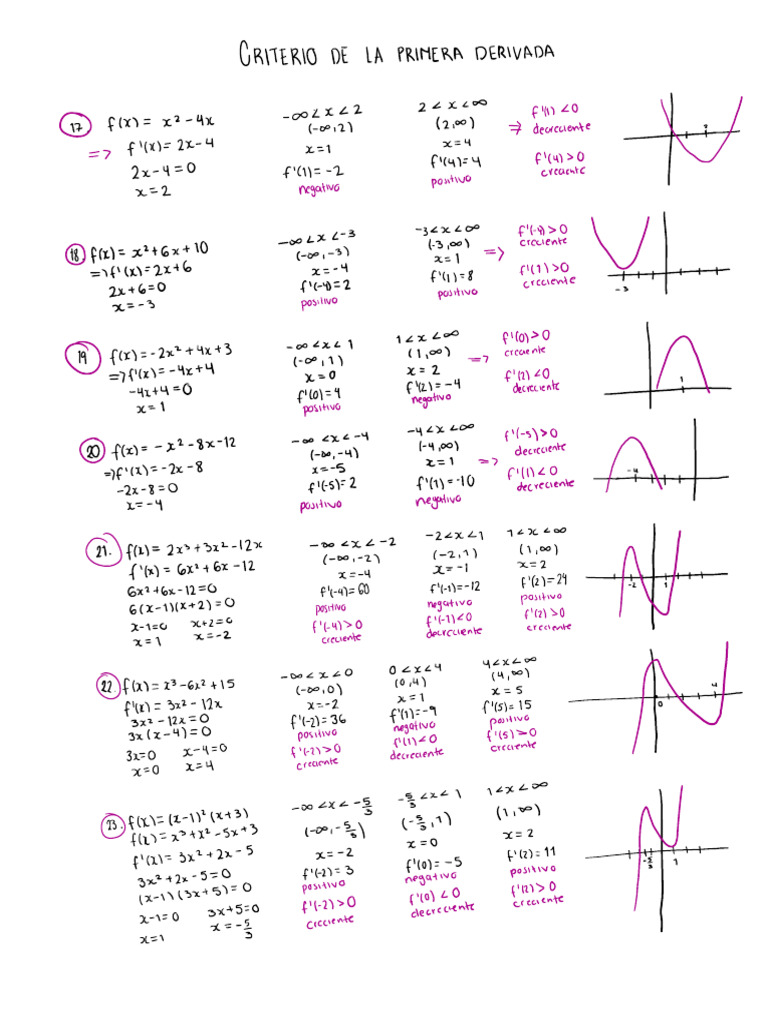 CRITERIO DE LA PRIMERA DERIVADA
17 f(x) = x² - 4x
=> f'(x) = 2x - 4
2x - 4 = 0
x = 2
-∞ < x < 2
(-∞, 2)
x = 1
f'(1) = -2
negativo
2 < x < ∞
(2, ∞)
x = 4
f'(4) = 4
positivo
=> f'(1) < 0
decreciente
f'(4) > 0
creciente
2
18. f(x) = x² + 6x + 10
=> f'(x) = 2x + 6
2x + 6 = 0
x = -3
-∞ < x < -3
(-∞, -3)
x = -4
f'(-4) = 2
positivo
-3 < x < ∞
(-3, ∞)
x = 1
f'(1) = 8
positivo
=> f'(-4) > 0
creciente
f'(1) > 0
creciente
-3
19 f(x) = -2x² + 4x + 3
=> f'(x) = -4x + 4
-4x + 4 = 0
x = 1
-∞ < x < 1
(-∞, 1)
x = 0
f'(0) = 4
positivo
1 < x < ∞
(1, ∞)
x = 2
f'(2) = -4
negativo
=> f'(0) > 0
creciente
f'(2) < 0
decreciente
1
20 f(x) = -x² - 8x - 12
=> f'(x) = -2x - 8
-2x - 8 = 0
x = -4
-∞ < x < -4
(-∞, -4)
x = -5
f'(-5) = 2
positivo
-4 < x < ∞
(-4, ∞)
x = 1
f'(1) = -10
negativo
=> f'(-5) > 0
decreciente
f'(1) < 0
decreciente
-4
21. f(x) = 2x³ + 3x² - 12x
f'(x) = 6x² + 6x - 12
6x² + 6x - 12 = 0
6(x - 1)(x + 2) = 0
x - 1 = 0 x + 2 = 0
x = 1 x = -2
-∞ < x < -2
(-∞, -2)
x = -4
f'(-4) = 60
positivo
f'(-4) > 0
creciente
-2 < x < 1
(-2, 1)
x = -1
f'(-1) = -12
negativo
f'(-1) < 0
decreciente
1 < x < ∞
(1, ∞)
x = 2
f'(2) = 24
positivo
f'(2) > 0
creciente
-2 1
22. f(x) = x³ - 6x² + 15
f'(x) = 3x² - 12x
3x² - 12x = 0
3x(x - 4) = 0
3x = 0 x - 4 = 0
x = 0 x = 4
-∞ < x < 0
(-∞, 0)
x = -2
f'(-2) = 36
positivo
f'(-2) > 0
creciente
0 < x < 4
(0, 4)
x = 1
f'(1) = -9
negativo
f'(1) < 0
decreciente
4 < x < ∞
(4, ∞)
x = 5
f'(5) = 15
positivo
f'(5) > 0
creciente
0 4
23. f(x) = (x - 1)² (x + 3)
f(x) = x³ + x² - 5x + 3
f'(x) = 3x² + 2x - 5
3x² + 2x - 5 = 0
(x - 1)(3x + 5) = 0
x - 1 = 0 3x + 5 = 0
x = 1 x = -5/3
-∞ < x < -5/3
(-∞, -5/3)
x = -2
f'(-2) = 3
positivo
f'(-2) > 0
creciente
-5/3 < x < 1
(-5/3, 1)
x = 0
f'(0) = -5
negativo
f'(0) < 0
decreciente
1 < x < ∞
(1, ∞)
x = 2
f'(2) = 11
positivo
f'(2) > 0
creciente
-5/3 1